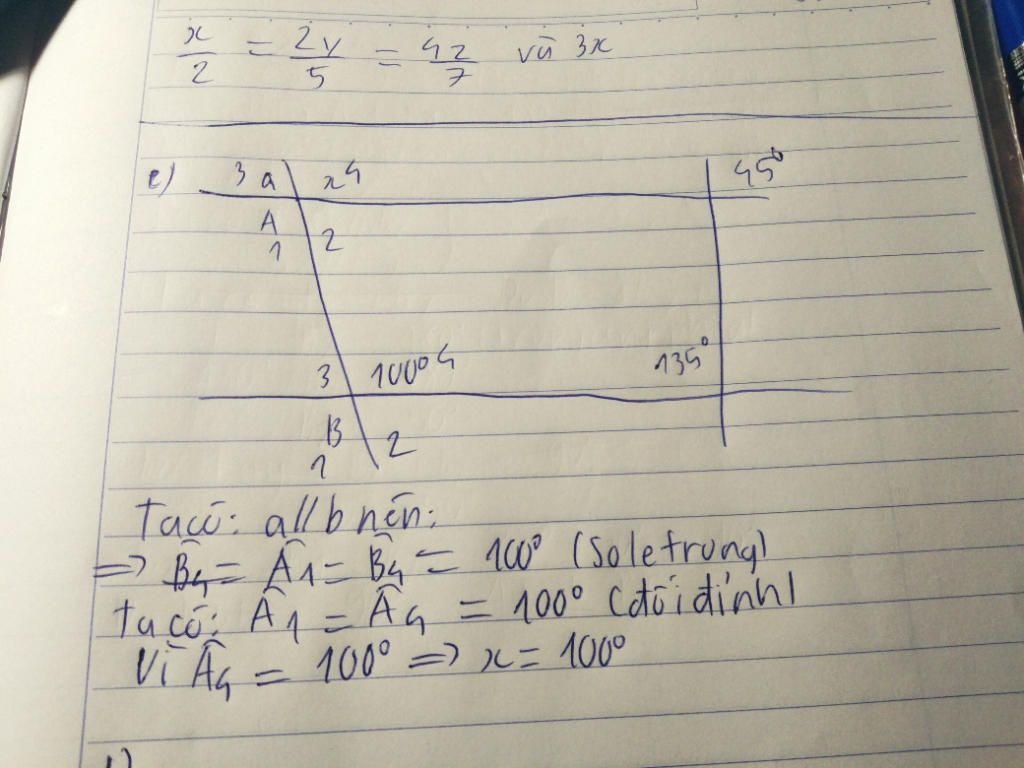 x/2 = 2y/5 = 4z/7 và 3x
e) 3 a x 4 45°
A
1 2
3 100° 4 135°
B 2
1
Ta có: a//b nên:
=> B̂4 = Â1 = B̂4 = 100° (So le trong)
Ta có: Â1 = Â4 = 100° (đối đỉnh)
Vì Â4 = 100° => x = 100°